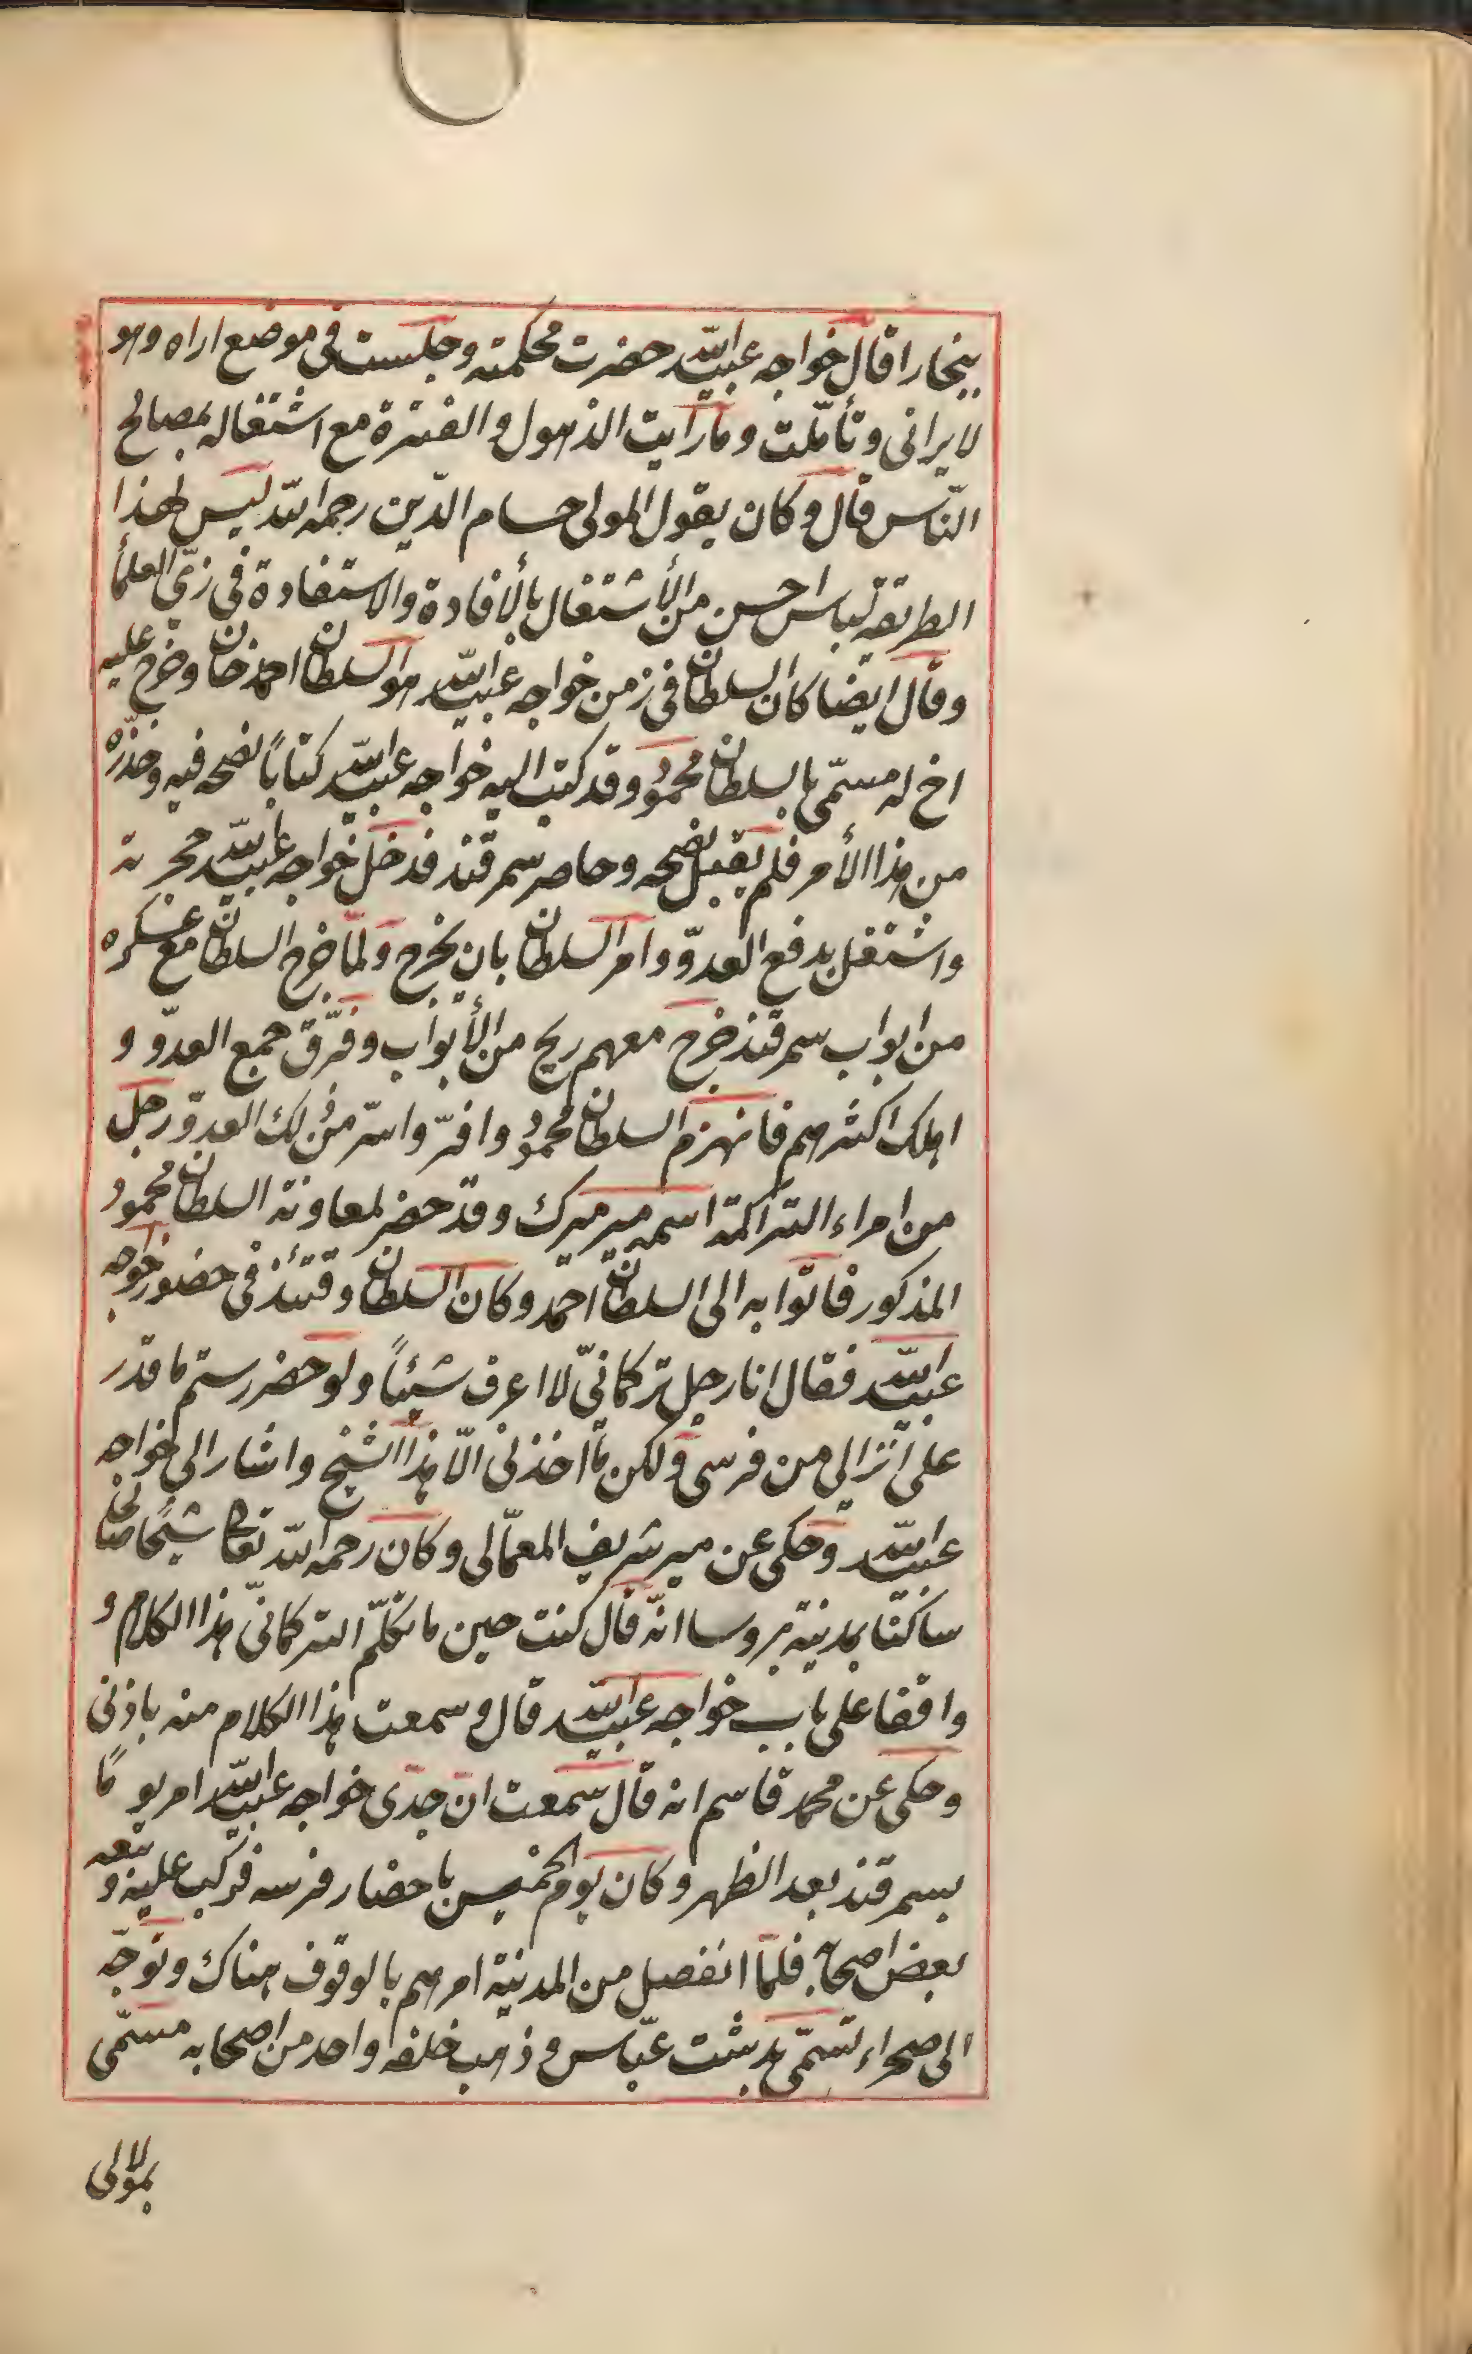 ببخارا قال خواجه عبيد الله حضرت محكمته وجلست فى موضع اراه وهو
لا يرانى وتأملت وما رايت الذهول والفترة مع اشتغاله بمصالح
النّاس قال وكان يقول المولى حسام الدّين رحمه الله ليس لهذا
الطريقة لباس احسن من الأشتغال بالأفادة والاستفادة فى زىّ العلمأ
وقال ايضا كان السلطان فى زمن خواجه عبيد الله هو السلطان احمد خان وخرج عليه
اخ له مسمّى بالسلطان محمود وقد كتب اليه خواجه عبيد الله كتاباً نصحه فيه وحذّره
من هذا الأمر فلم يقبل نصحه وحاصر سمرقند فدخل خواجه عبيد الله حجرته
واشتغل بدفع العدوّ وامر السلطان بان يخرج ولما خرج السلطان مع عسكره
من ابواب سمرقند خرج معهم ريح من الأبواب وفرّق جمع العدوّ و
اهلك اكثرهم فانهزم السلطان محمود وافرّ واسر من ذلك العدوّ رجل
من امراء التراكمة اسمه مير ميرك وقد حضر لمعاونة السلطان محمود
المذكور فاتوا به الى السلطان احمد وكان السلطان وقتئذ فى حضور خواجه
عبيد الله فقال انا رجل تركمانىّ لا اعرف شيئاً ولو حضر رستم ما قدر
على انزالى من فرسى ولكن ما اخذنى الّا هذا الشيخ واشار الى خواجه
عبيد الله وحكى عن مير شريف المعمّالى وكان رحمه الله تعالى شيخا صالحا
ساكنا بمدينة بروسا انّه قال كنت حين ما تكلّم التركمانىّ هذا الكلام و
واقفا على باب خواجه عبيد الله قال وسمعت هذا الكلام منه باذنى
وحكى عن محمد قاسم انه قال سمعت ان جدّى خواجه عبيد الله امر يوما
بسمرقند بعد الظهر وكان يوم الخميس باحضار فرسه فركب عليه وتبعه
بعض اصحابه فلمّا انفصل من المدينة امرهم بالوقوف هناك وتوجّه
الى صحراء تسمّى بدشت عبّاس وذهب خلفه واحد من اصحابه مسمّى
بمولالى